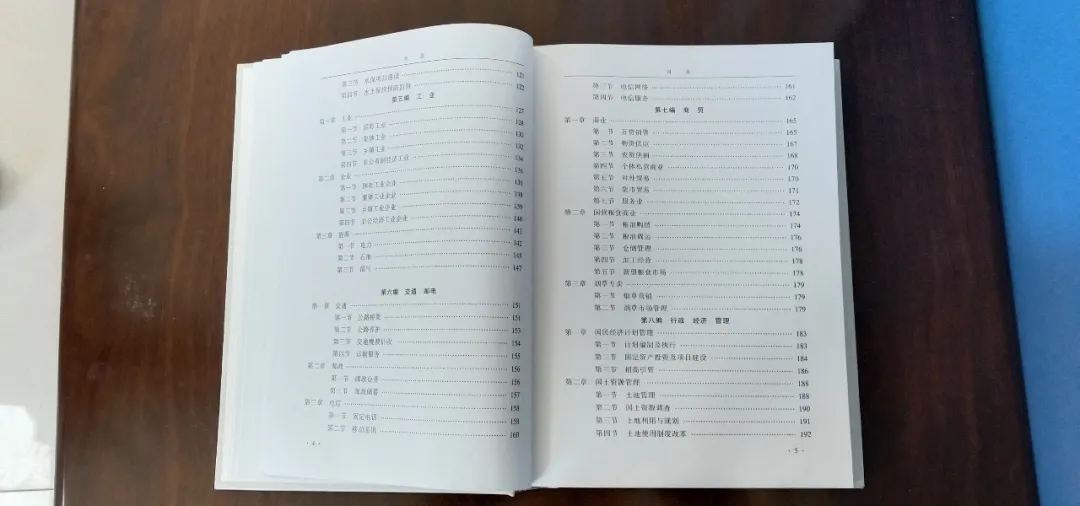 目 录
第三节 水保项目建设 121
第四节 水土保持预防监督 122
第三编 工 业
第一章 工业 127
第一节 国有工业 128
第二节 集体工业 130
第三节 乡镇工业 132
第四节 非公有制经济工业 134
第二章 企业 136
第一节 国有工业企业
第二节 集体工业企业 138
第三节 乡镇工业企业 139
第四节 非公经济工业企业 140
第三章 能源 141
第一节 电力 142
第二节 石油 145
第三节 煤气 147
第六编 交通 邮电
第一章 交通 151
第一节 公路桥梁 151
第二节 公路养护 153
第三节 交通规费征收 154
第四节 运输服务 155
第二章 邮政 156
第一节 邮政业务 156
第二节 邮政储蓄 157
第三章 电信 158
第一节 固定电话 158
第二节 移动通信 160
· 4 ·
目 录
第三节 电信网络 161
第四节 电信服务 162
第七编 商 贸
第一章 商业 165
第一节 百货销售 165
第二节 物资供应 167
第三节 农资供销 168
第四节 个体私营商业 170
第五节 对外贸易 170
第六节 集市贸易 171
第七节 服务业 172
第二章 国营粮食商业 174
第一节 粮油购销 174
第二节 粮油调运 176
第三节 仓储管理 176
第四节 加工经营 178
第五节 新型粮食市场 178
第三章 烟草专卖 179
第一节 烟草营销 179
第二节 烟草市场管理 179
第八编 行政 经济 管理
第一章 国民经济计划管理 183
第一节 计划编制及执行 183
第二节 固定资产投资及项目建设 184
第三节 招商引资 186
第二章 国土资源管理 188
第一节 土地管理 188
第二节 国土资源调查 190
第三节 土地利用与规划 191
第四节 土地使用制度改革 192
· 5 ·